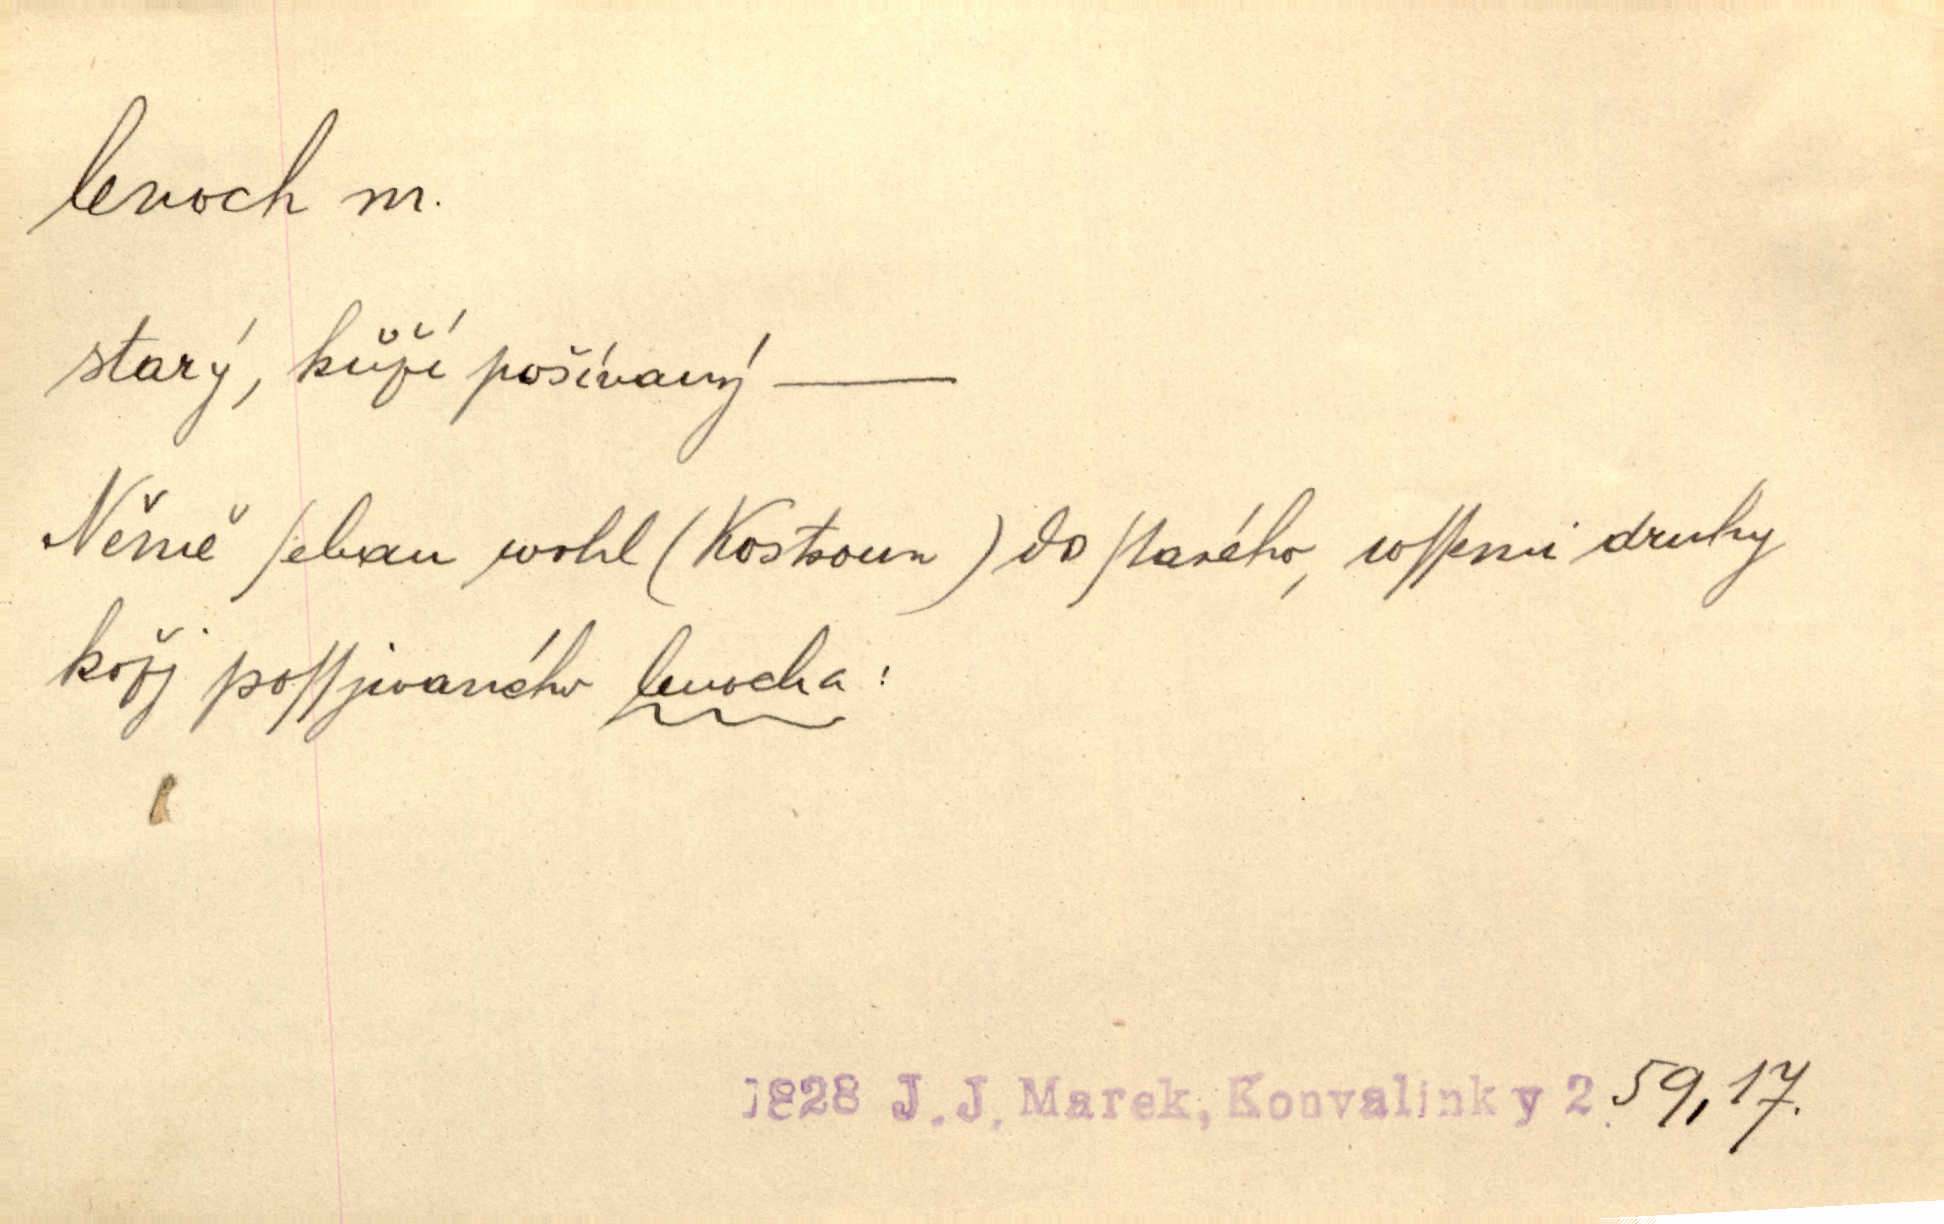 lenoch m.
starý, kůží pošívaný —
Němě sebau wohl (Kostroun) do starého, wssemi druhy
kožj possjwaného lenocha:
1828 J. J. Marek, Konvalinky 2. 59, 17.